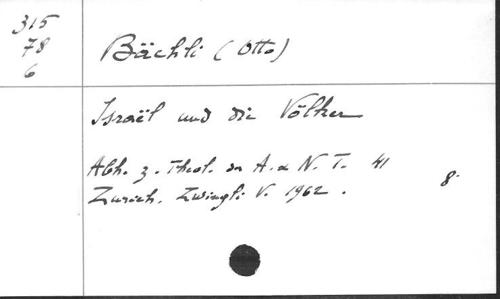 315
78
6
Bächli (Otto)
Israël und die Völker
Abh. z. Theol. des A. u N. T. 41
Zurich. Zwingli V. 1962. 8°